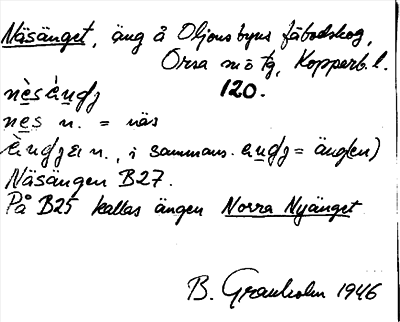 Näsänget, äng å Oljonsbyns fäbodskog,
Orsa sn o tg, Kopperb. l.
120.
nès
nes n. = näs
n., i sammans. = äng(en)
Näsängen B27.
På B25 kallas ängen Norra Nyänget
B. Granholm 1946